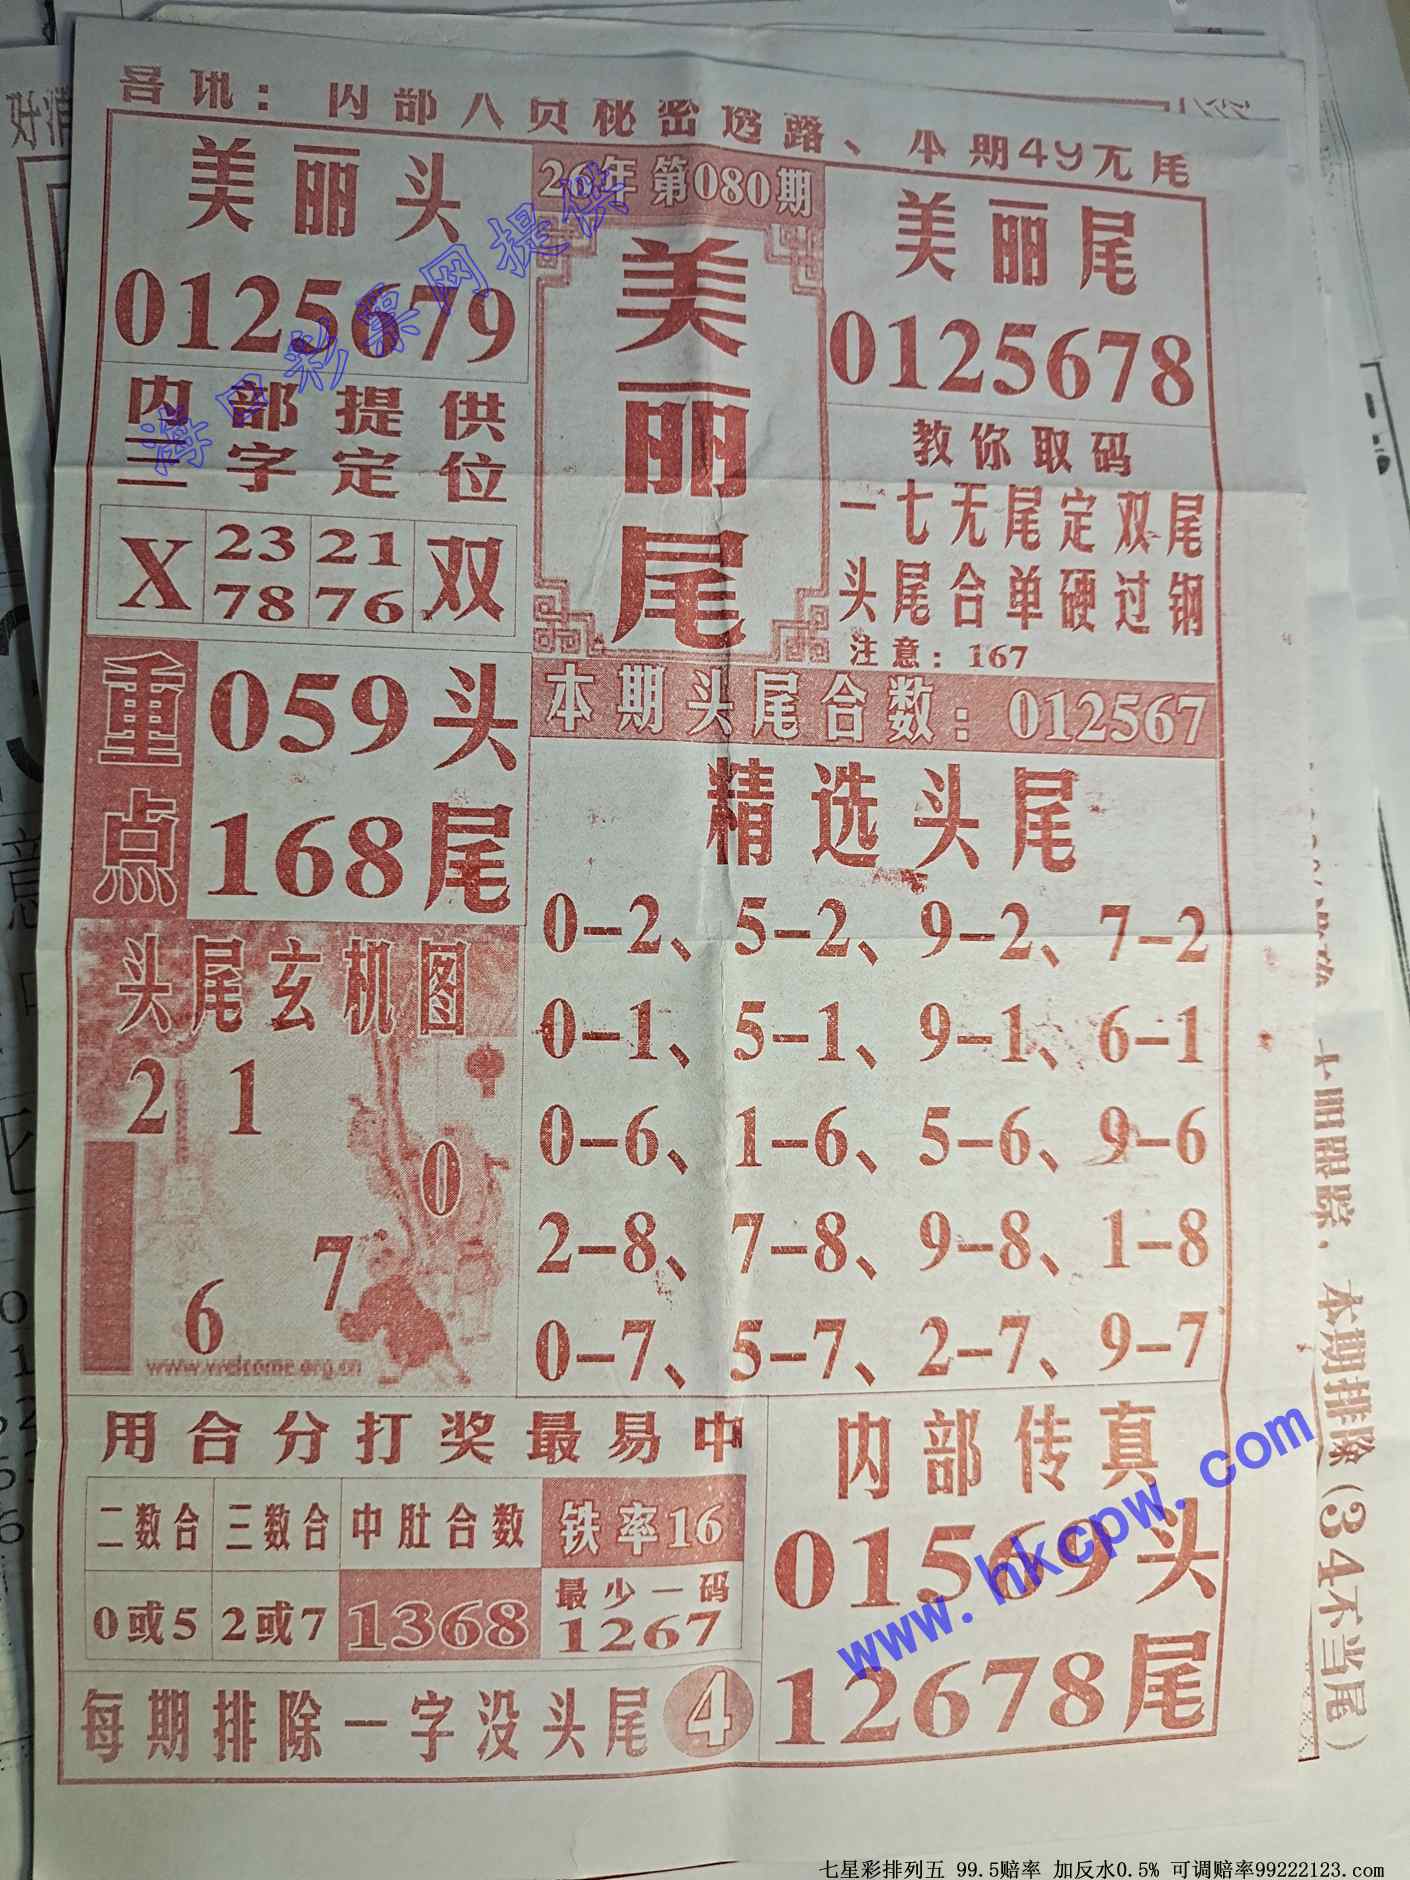 喜讯：内部人员秘密透路、本期49无尾
美丽头
0125679
26年第080期
美丽尾
美丽尾
0125678
内部提供
三字定位
X 23 21 双
78 76
教你取码
一七无尾定双尾
头尾合单硬过钢
注意：167
重点
059头
168尾
本期头尾合数：012567
精选头尾
0-2、5-2、9-2、7-2
0-1、5-1、9-1、6-1
0-6、1-6、5-6、9-6
2-8、7-8、9-8、1-8
0-7、5-7、2-7、9-7
头尾玄机图
2 1
0
7
6
www.welcome.org.cn
用合分打奖最易中
二数合 三数合 中肚合数 铁率16
0或5 2或7 1368 最少一码
1267
每期排除一字没头尾 4
内部传真
01569头
12678尾
海口彩票网提供
www.hkcpw.com
本期排除(34不当尾)
七星彩排列五 99.5赔率 加反水0.5% 可调赔率99222123.com